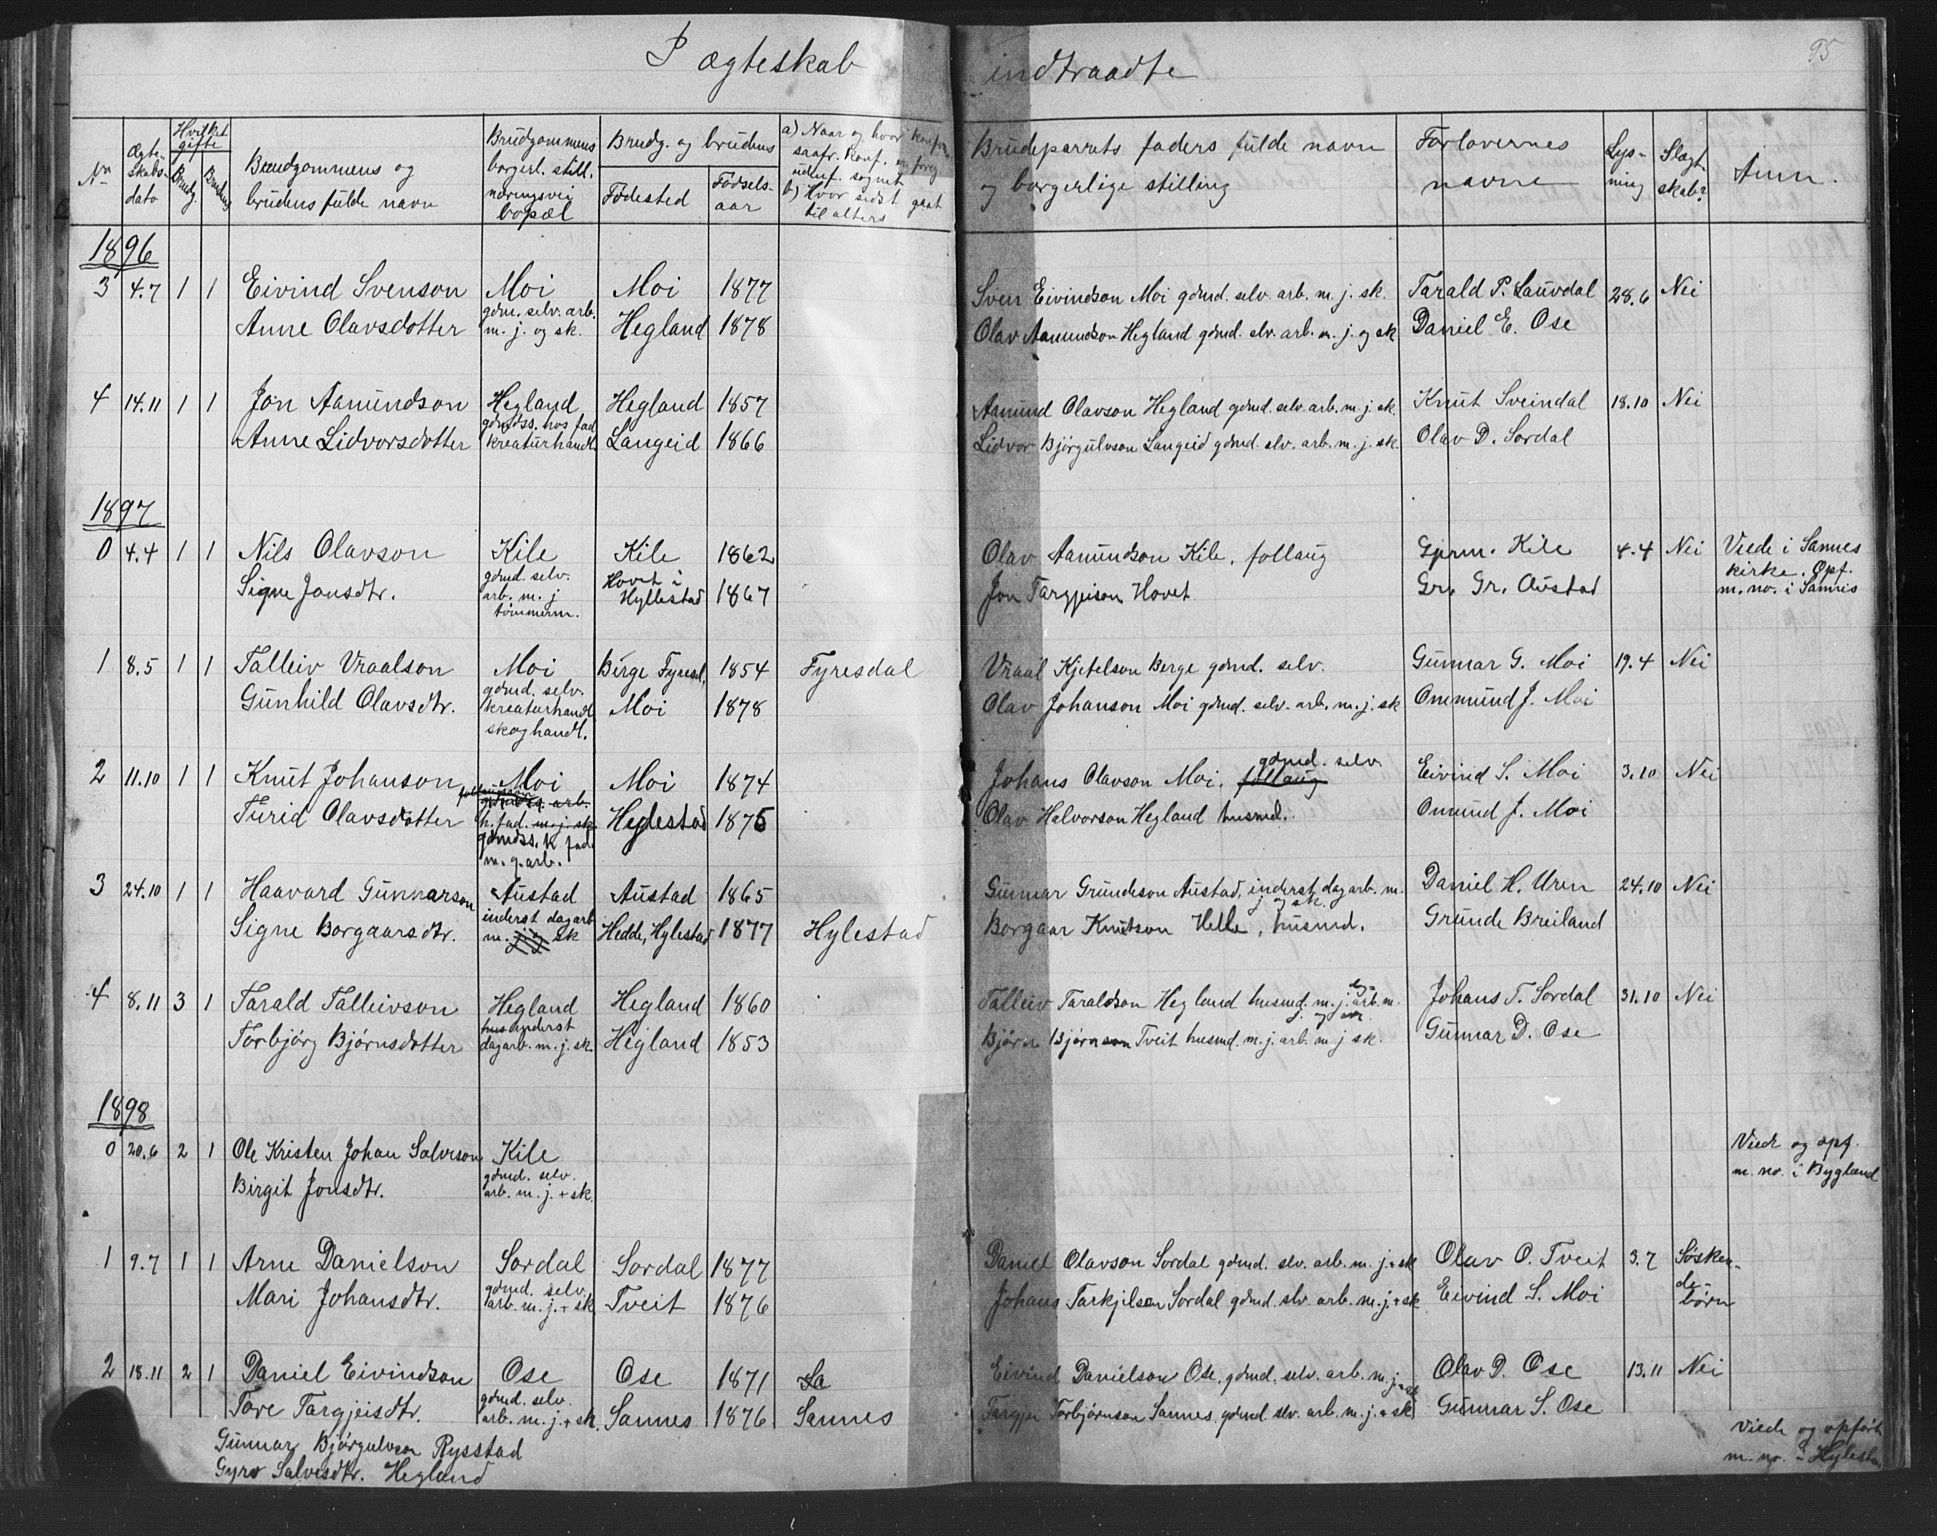 I ægteskab indtraadte
95
No
Ægte-
skabs-
dato
Hvilket
gifte
Brudg.
Bruden
Brudgommens og
brudens fulde navn
Brudgommens
borgerl. still.
næringsvei
bopæl
Brudg. og brudens
Fødested
Fødsels-
aar
a) Naar og hvor
saafr. konf.
udenf. sognet
b) Hvor sidst gaat
til alters
Brudeparrets faders fulde navn
og borgerlige stilling
Forlovernes
navne
Lys-
ning
Slægt-
skab?
Anm.
1896
3 4.7 1 1 Eivind Svenson Moi Moi 1877 Sven Eivindson Moi gdmd. selv. arb. m. j. sk. Tarald P. Lauvdal 28.6 Nei
gdm. selv. arb.
Anne Olavsdotter m. j. og sk. Hegland 1878 Olav Aamundson Hegland gdmd. slv. arb. m. j. og sk Daniel E. Ose
4 14.11 1 1 Jon Aamundson Hegland Hegland 1857 Aamund Olavson Hegland gdmd. selv. arb. m. j. sk. Knut Sveindal 18.10 Nei
gdmdss. hos fad
Anne Lidvorsdotter kreaturhandl. Langeid 1866 Lidvor Bjørgulvson Langeid gdmd. slv. arb. m. j. sk. Olav D. Sordal
1897
0 4.4 1 1 Nils Olavson Kile Kile 1862 Olav Aamundson Kile, follaug Gjerm. Kile 4.4 Nei Viede i Sannes
gdmd. selv. Hovet i kirke. Opf.
Signe Jonsdtr. arb. m. j Hyllestad 1867 Jon Targjeison Hovet Gr. Gr. Austad m. no. i Sannes
tømmerm.
1 8.5 1 1 Talleiv Vraalson Moi Berge Fyresd. 1854 Fyresdal Vraal Kjetelson Berge gdmd. selv. Gunnar G. Moi 19.4 Nei
gdmd. selv.
Gunhild Olavsdtr. kreaturhandl Moi 1878 Olav Johanson Moi gdmd. selv. arb. m. j. sk Ommund J. Moi
skoghandl.
2 11.10 1 1 Knut Johanson Moi Moi 1874 Johans Olavson Moi, follaug gdmd. selv. Eivind S. Moi 3.10 Nei
gdmdss. arb.
Turid Olavsdotter h. fad. m. j. sk. Hylestad 1875 Olav Halvorson Hegland husmd. Omund J. Moi
gdmdss. h fad
m. g. arb.
3 24.10 1 1 Haavard Gunnarson Austad Austad 1865 Gunnar Grundeson Austad, inderst dagarb. m. Daniel H. Uren 24.10 Nei
inderst dagarb j og sk.
Signe Borgaarsdtr. m. j og sk Hedde, Hylestad 1877 Hylestad Borgaar Knutson Helle, husmd. Grunde Breiland
4 8.11 3 1 Tarald Talleivson Hegland Hegland 1860 Talleiv Taraldson Hegland husmd. m. j. arb. m. Johans T. Sordal 31.10 Nei
inderst
Torbjörg Bjørnsdotter dagarb. m. j. sk. Hegland 1853 Bjørn Bjørnson Tveit husmd. m. j. arb. m. j sk. Gunnar D. Ose
1898
0 20.6 2 1 Ole Kristen Johan Salveson Kile Viede og opf.
gdmd. selv.
Birgit Jonsdtr. arb. m. j. + sk. m. no. i Bygland
1 9.7 1 1 Arne Danielson Sordal Sordal 1877 Daniel Olavson Sordal gdmd. slv. arb. m. j. + sk Olav O. Tveit 3.7 Sösken-
gdmd. selv. de-
Mari Johansdtr. arb. m. j. + sk Tveit 1876 Johans Tarkjelsen Sordal gdmd. slv. arb. m. j. + sk Eivind S. Moi børn
2 18.11 2 1 Daniel Eivindson Ose Ose 1871 Sa Eivind Danielson Ose, gdmd. selv. arb. m. j. + sk Olav D. Ose 13.11 Nei
gdmd. selv.
Tore Targjeisdtr. arb. m. j. + sk. Sannes 1876 Sannes Targjei Torbjørnson Sannes, gdmd. slv. arb. m. j. + sk Gunnar S. Ose
Gunnar Bjørgulvson Rysstad Viede og opført
Gyro Salvesdtr. Hegland m. no. i Hylestad